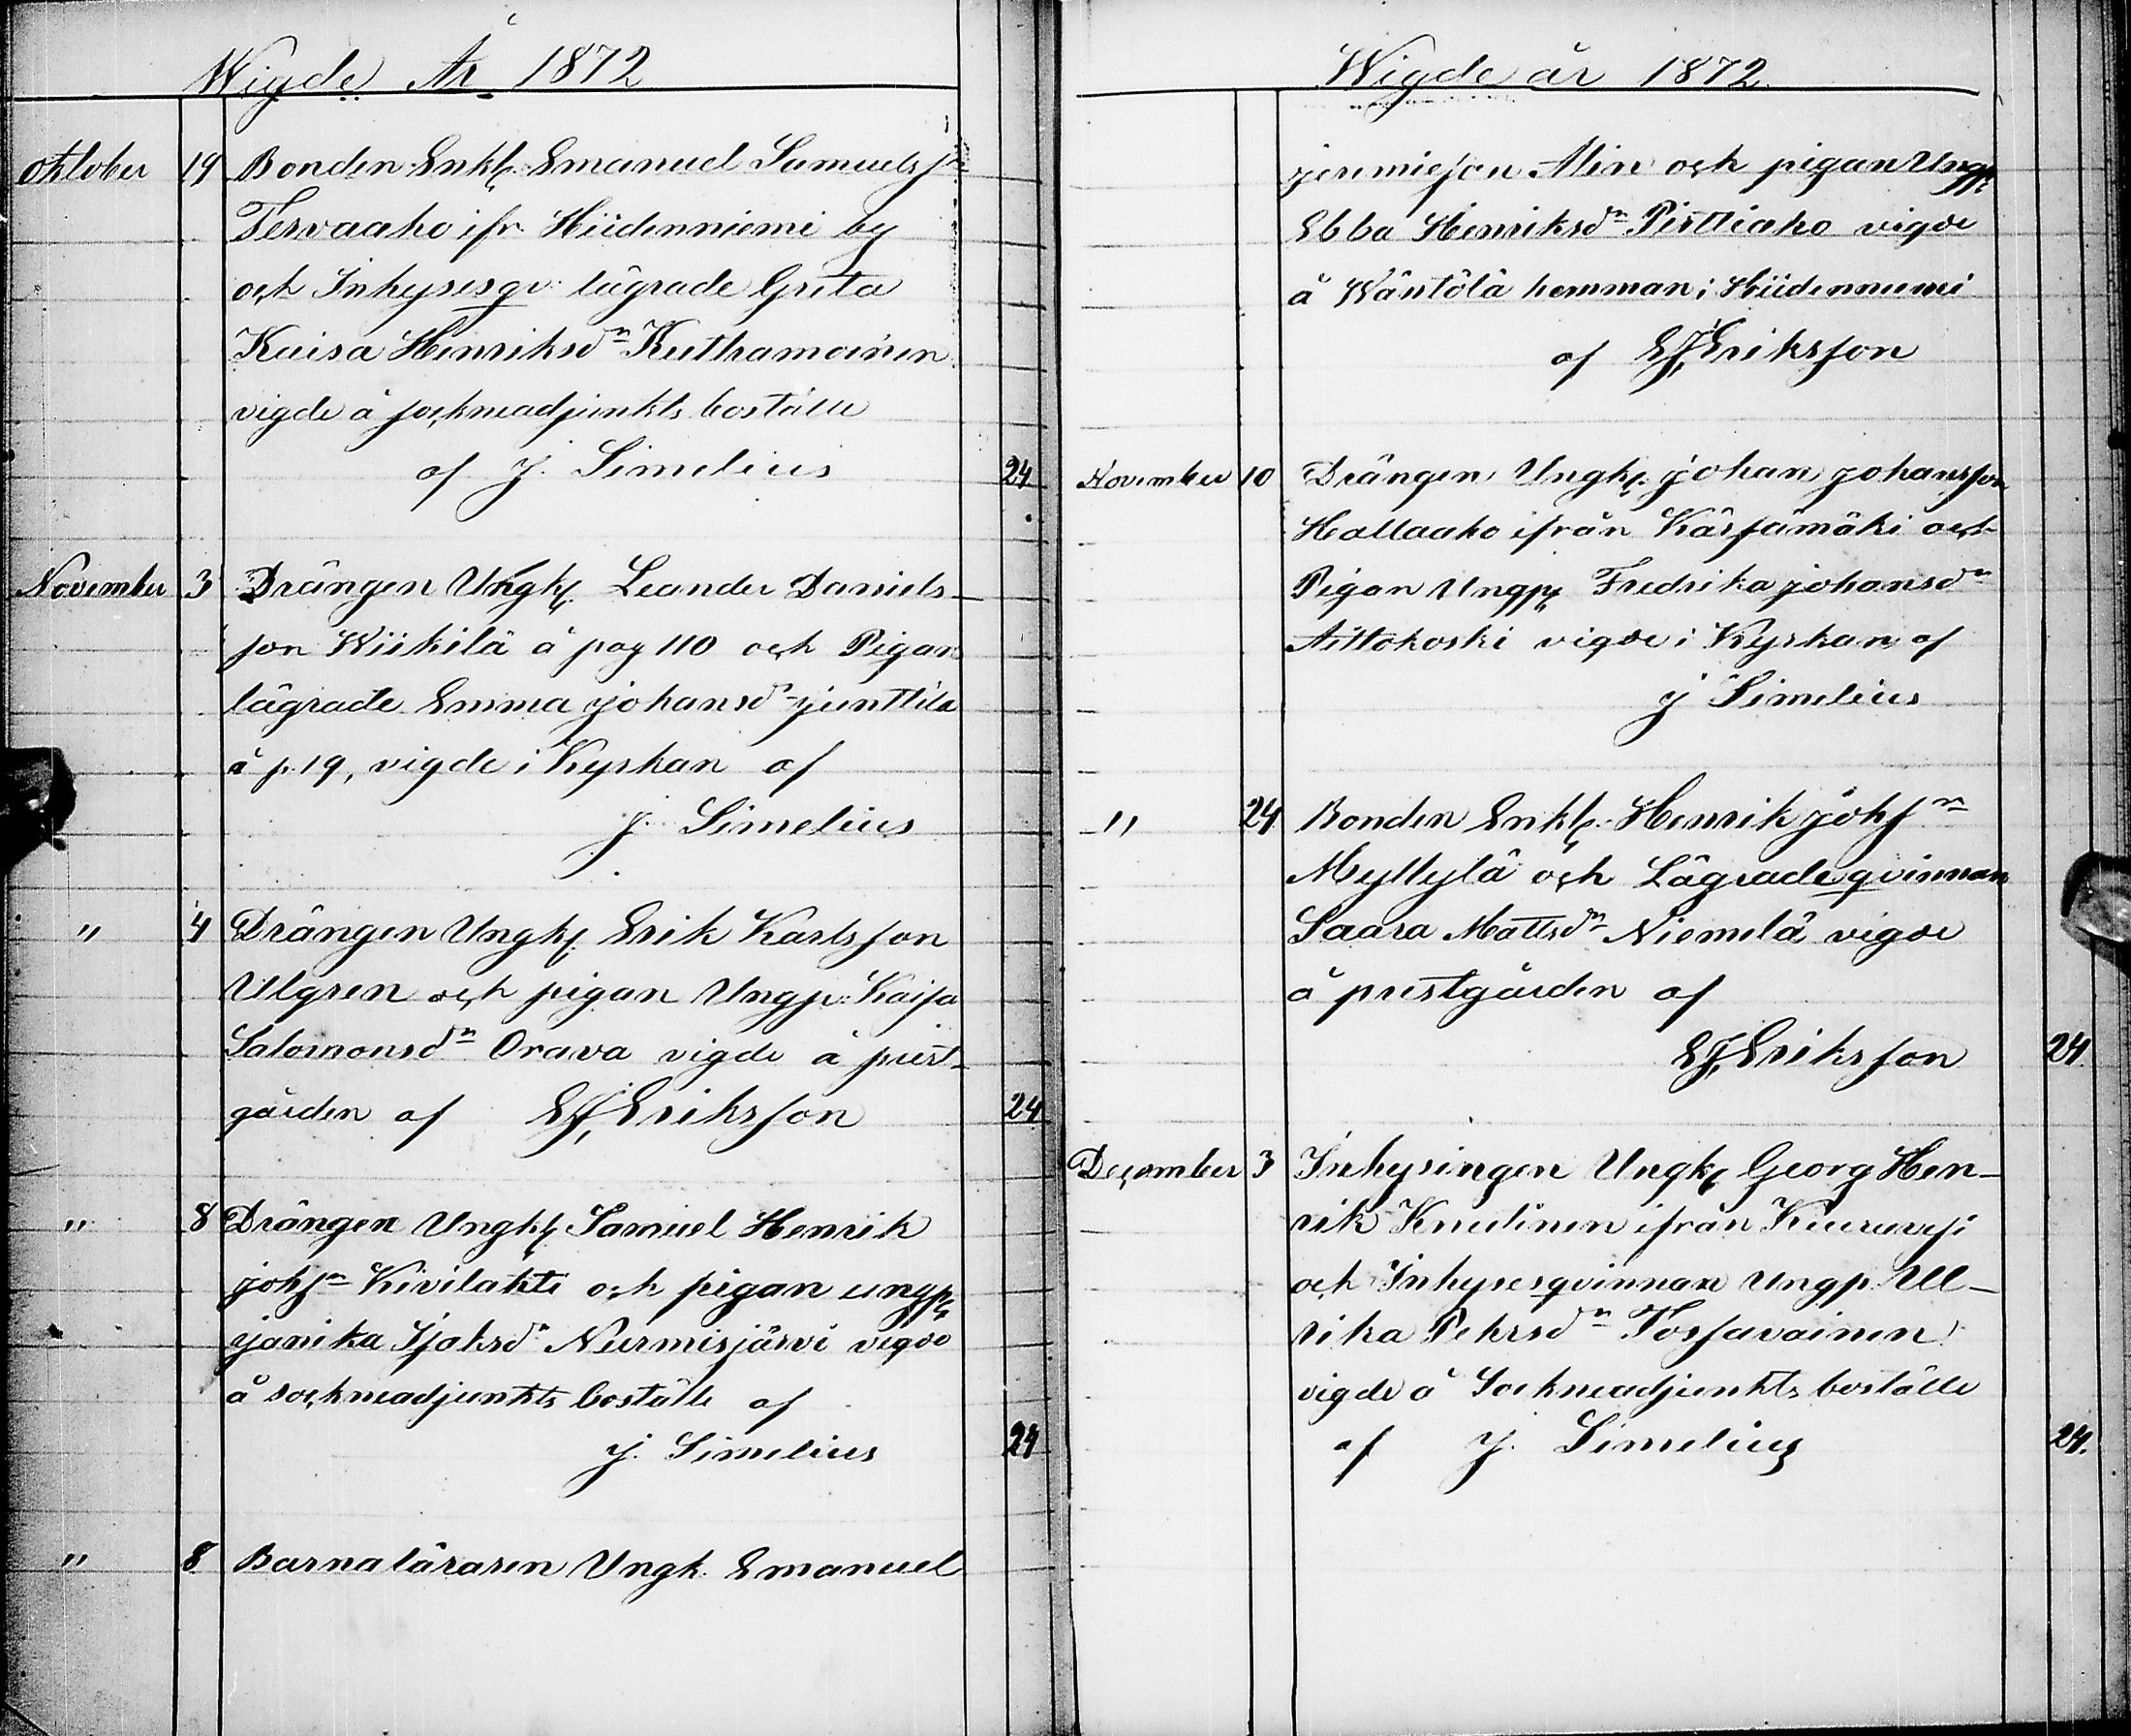 Wigde År 1872
oktober 19 Bonden Enkl. Emanuel Samuelss:n
Tervaaho ifr. Hiidenniemi by
och Inhysesqv: lägrade Greta
Kaisa Henriksd:n Kettramoinen
vigde å sockneadjunkts boställe
af J. Simelius 24
November 3 Drängen Ungk. Leander Daniels-
son Wiikilä å pag 110 och Pigan
lägrade Emma Johansd:r Junttila
å p. 19, vigde i Kyrkan af
J. Simelius
" 4 Drängen Ungk. Erik Karlsson
Ulgren och pigan Ungp: Kaisa
Salomonsd:n Orava vigde å prest-
gården af EJ,Eriksson 24
" 8 Drängen Ungk. Samuel Henrik
Johs:n Kivilahti och pigan ungp.
Janika Isaksd:r Nurmisjärvi vigde
å sockneadjunkts boställe af
J. Simelius 24
" 8 Barnaläraren Ungk. Emanuel
Wigde år 1872.
Jeremiesson Alin och pigan Ungp.
Ebba Henriksd:n Pirttiaho vigde
å Wäntölä hemman i Hiidenniemi
af EJ,Eriksson
November 10 Drängen Ungk. Johan Johansson
Hallaaho ifrån Kärsämäki och
Pigan Ungp. Fredrika Johansd:n
Aittokoski vigde i Kyrkan af
J Simelius
" 24 Bonden Enkl. Henrik Johs:n
Myllylä och Lägradeqvinnan
Saara Mattsd:n Niemelä vigde
å prestgården af
EJ,Eriksson 24.
December 3 Inhysingen Ungk. Georg Hen-
rik Knutinen ifrån Kiuruvesi
och Inhysesqvinnan Ungp. Ul-
rika Pehrsd:n Tossavainen
vigde å Sockneadjunkts boställe
af J. Simelius 24.